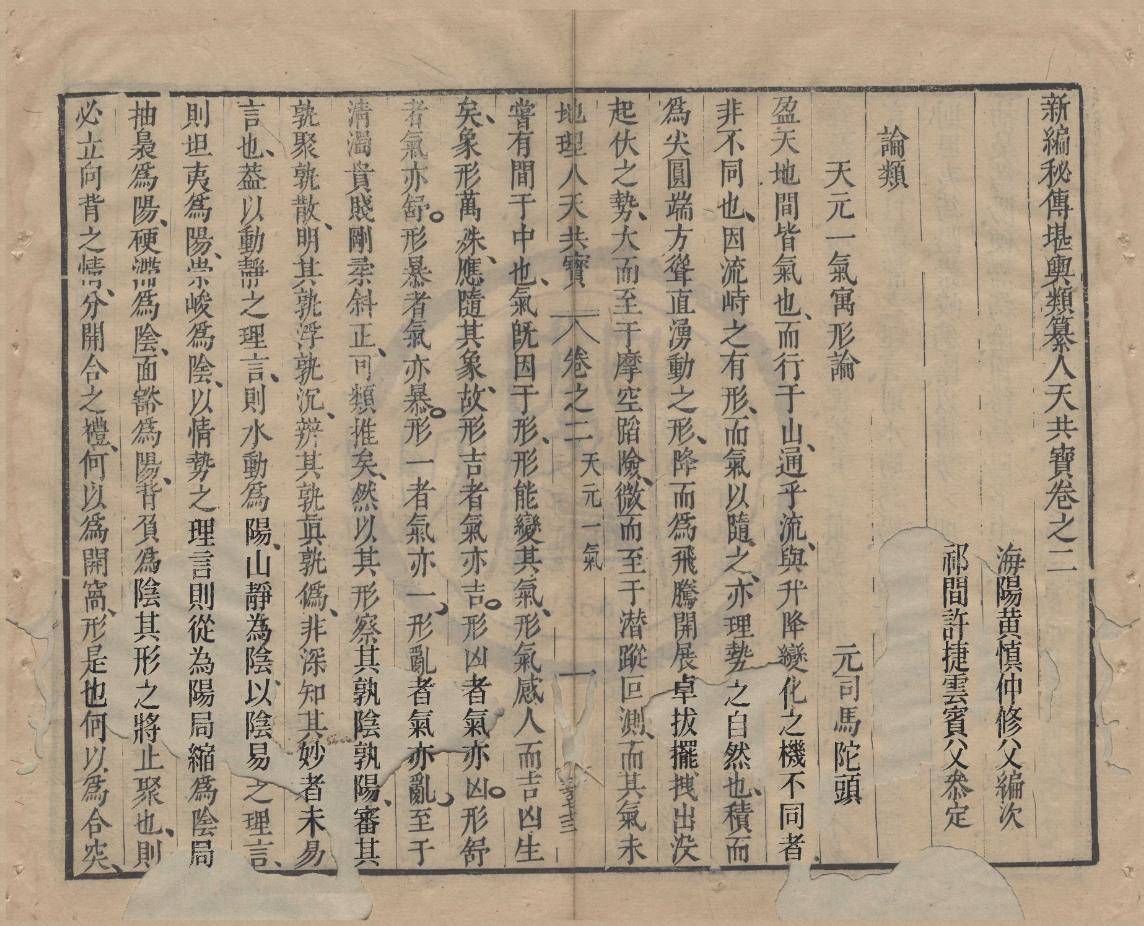 新編秘傳堪輿類纂人天共寶卷之二
海陽黄慎仲修父編次
祁閶許捷雲賓父叅定
論類
天元一氣寓形論
元司馬陀頭
盈天地間皆氣也、而行于山、通乎流、與升降變化之機不同者、
非不同也、因流峙之有形、而氣以隨之、亦理勢之自然也、積而
爲尖圓端方聳直湧動之形、降而爲飛騰開展卓拔擺拽出没
起伏之勢、大而至于摩空蹈險、微而至于潛蹤叵測、而其氣未
地理人天共寶 卷之二 天元一氣 一
嘗有間于中也、氣既因于形、形能變其氣、形氣感人而吉凶生
矣、象形萬殊、應隨其象、故形吉者氣亦吉。形凶者氣亦凶。形舒
者氣亦舒。形暴者氣亦暴。形一者氣亦一、形亂者氣亦亂。至于
清濁貴賤剛柔斜正、可類推矣、然以其形察其孰陰孰陽、審其
孰聚孰散、明其孰浮孰沉、辨其孰真孰僞、非深知其妙者未易
言也、葢以動靜之理言、則水動爲陽、山靜為陰、以陰易之理言、
則坦夷爲陽、崇峻爲陰、以情勢之理言則從為陽局縮爲陰局
抽裊爲陽、硬滯爲陰、面豁爲陽、背負爲陰其形之將止聚也、則
必立向背之情、分開合之禮、何以爲開窩、形是也何以爲合突、